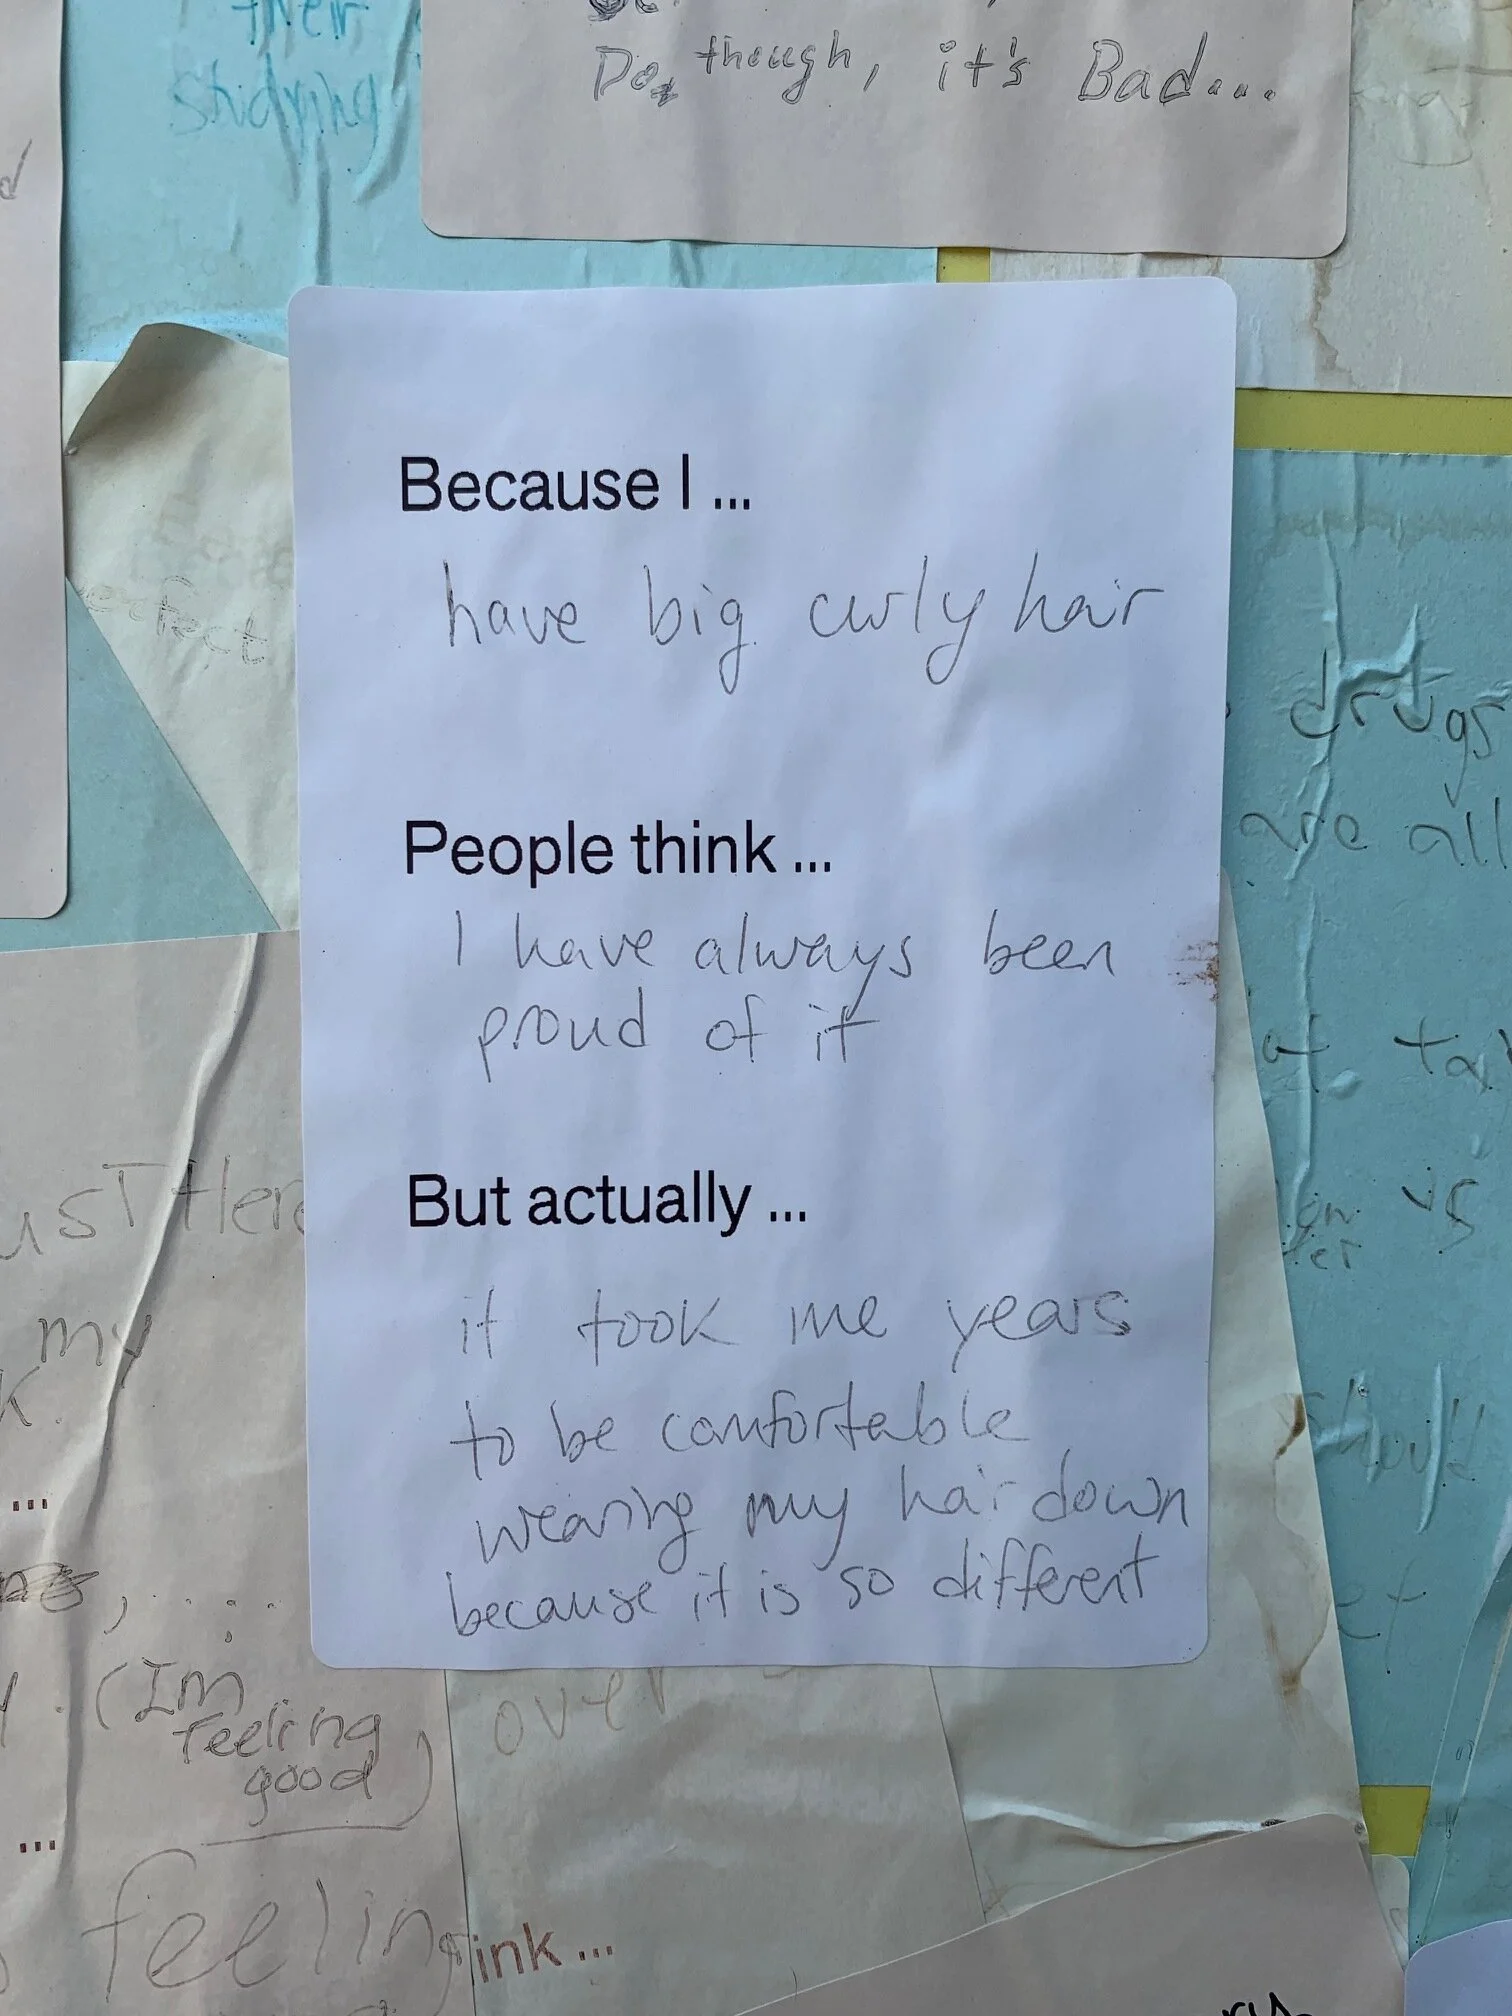 their
studying
Do though, it's Bad...
Because I ...
have big curly hair
People think ...
I have always been
proud of it
But actually ...
it took me years
to be comfortable
wearing my hair down
because it is so different
drugs
are all
us
my
(Im
feeling
good)
over
feeling
ink ...